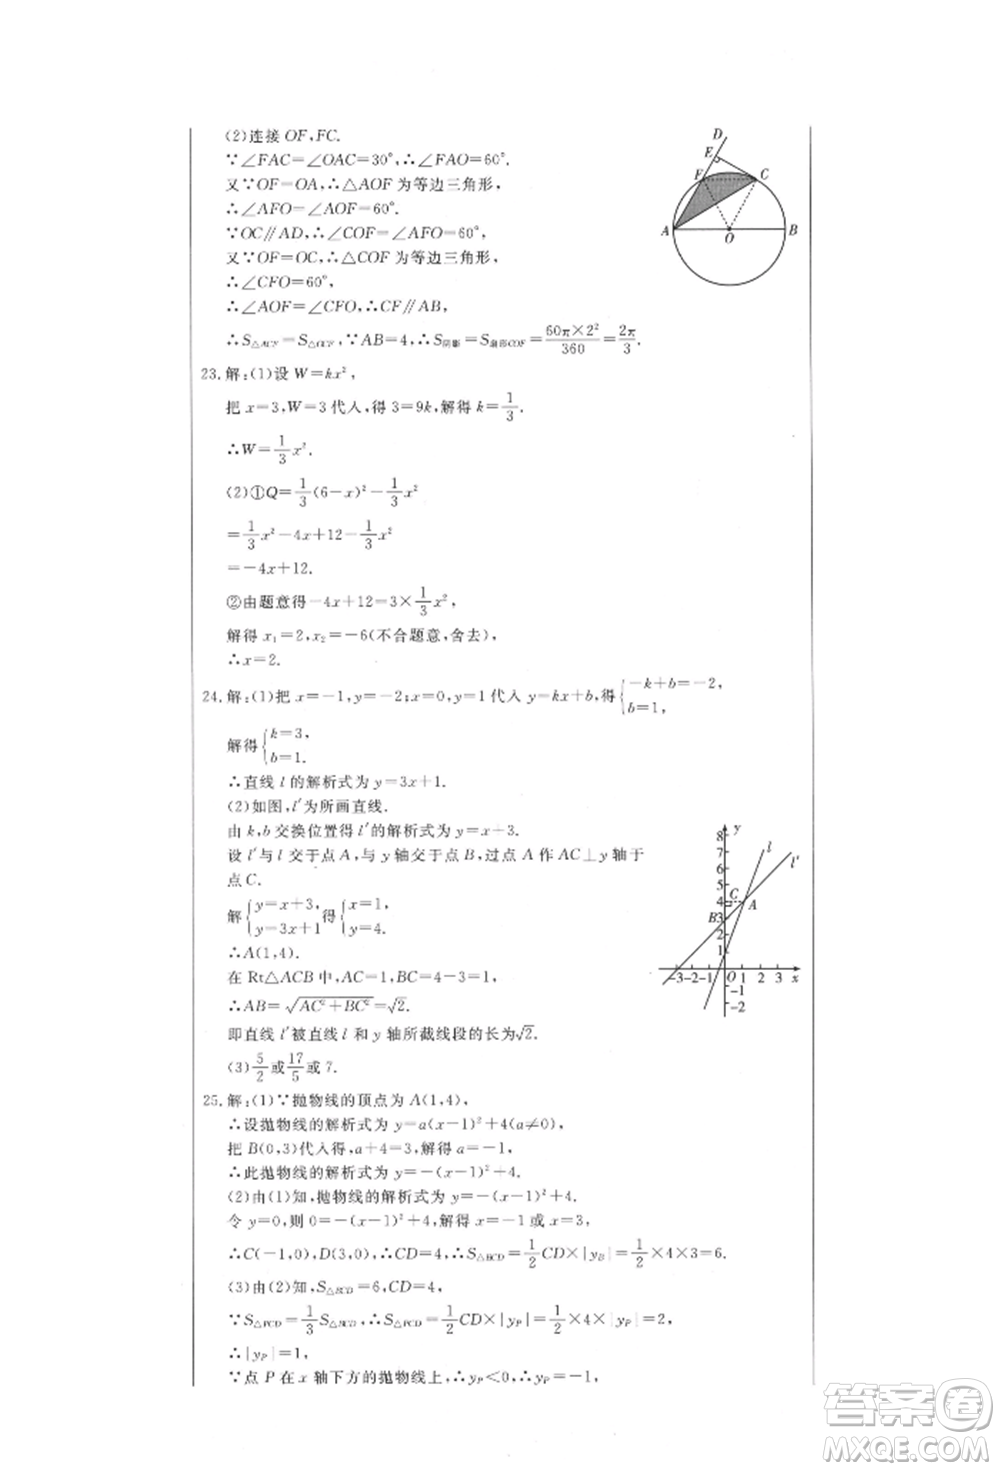 (2)连接 OF,FC.
∵∠FAC=∠OAC=30°,∴∠FAO=60°.
又∵OF=OA,∴△AOF 为等边三角形,
∴∠AFO=∠AOF=60°.
∵OC∥AD,∴∠COF=∠AFO=60°,
又∵OF=OC,∴△COF 为等边三角形,
∴∠CFO=60°.
∴∠AOF=∠CFO,∴CF∥AB,
∴S△ACF=S△OCF,∵AB=4,∴S阴影=S扇形COF=60π×2²/360=2π/3.
D
E
F
C
A
O
B
23.解:(1)设 W=kx²,
把 x=3,W=3 代入,得 3=9k,解得 k=1/3.
∴W=1/3x².
(2)①Q=1/3(6-x)²-1/3x²
=1/3x²-4x+12-1/3x²
=-4x+12.
②由题意得-4x+12=3×1/3x²,
解得 x₁=2,x₂=-6(不合题意,舍去),
∴x=2.
24.解:(1)把 x=-1,y=-2;x=0,y=1 代入 y=kx+b,得{-k+b=-2, b=1,
解得{k=3, b=1.
∴直线 l 的解析式为 y=3x+1.
(2)如图,l′为所画直线.
由 k,b 交换位置得 l′的解析式为 y=x+3.
设 l′与 l 交于点 A,与 y 轴交于点 B,过点 A 作 AC⊥y 轴于
点 C.
解{y=x+3, y=3x+1得{x=1, y=4.
∴A(1,4).
在 Rt△ACB 中,AC=1,BC=4-3=1,
∴AB=√AC²+BC²=√2.
即直线 l′被直线 l 和 y 轴所截线段的长为√2.
(3)5/2或17/5或 7.
y
8
7
6
5
4
3
2
1
l
l′
C
A
B
-3-2-1 O 1 2 3 x
-1
-2
25.解:(1)∵抛物线的顶点为 A(1,4),
∴设抛物线的解析式为 y=a(x-1)²+4(a≠0),
把 B(0,3)代入得,a+4=3,解得 a=-1,
∴此抛物线的解析式为 y=-(x-1)²+4.
(2)由(1)知,抛物线的解析式为 y=-(x-1)²+4.
令 y=0,则 0=-(x-1)²+4,解得 x=-1 或 x=3,
∴C(-1,0),D(3,0),∴CD=4,∴S△BCD=1/2CD×|yB|=1/2×4×3=6.
(3)由(2)知,S△BCD=6,CD=4,
∵S△PCD=1/3S△BCD,∴S△PCD=1/2CD×|yP|=1/2×4×|yP|=2,
∴|yP|=1,
∵点 P 在 x 轴下方的抛物线上,∴yP<0,∴yP=-1,
答案卷
MXQE.COM